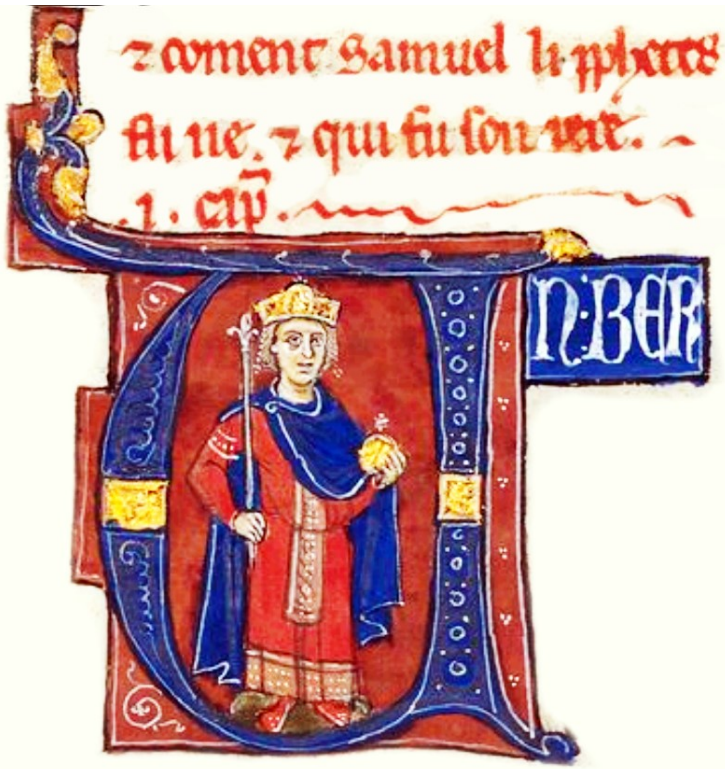 ⁊ coment Samuel li pphetes
fu ne. ⁊ qui fu son pere.
.i. cap̃.
UN·BER